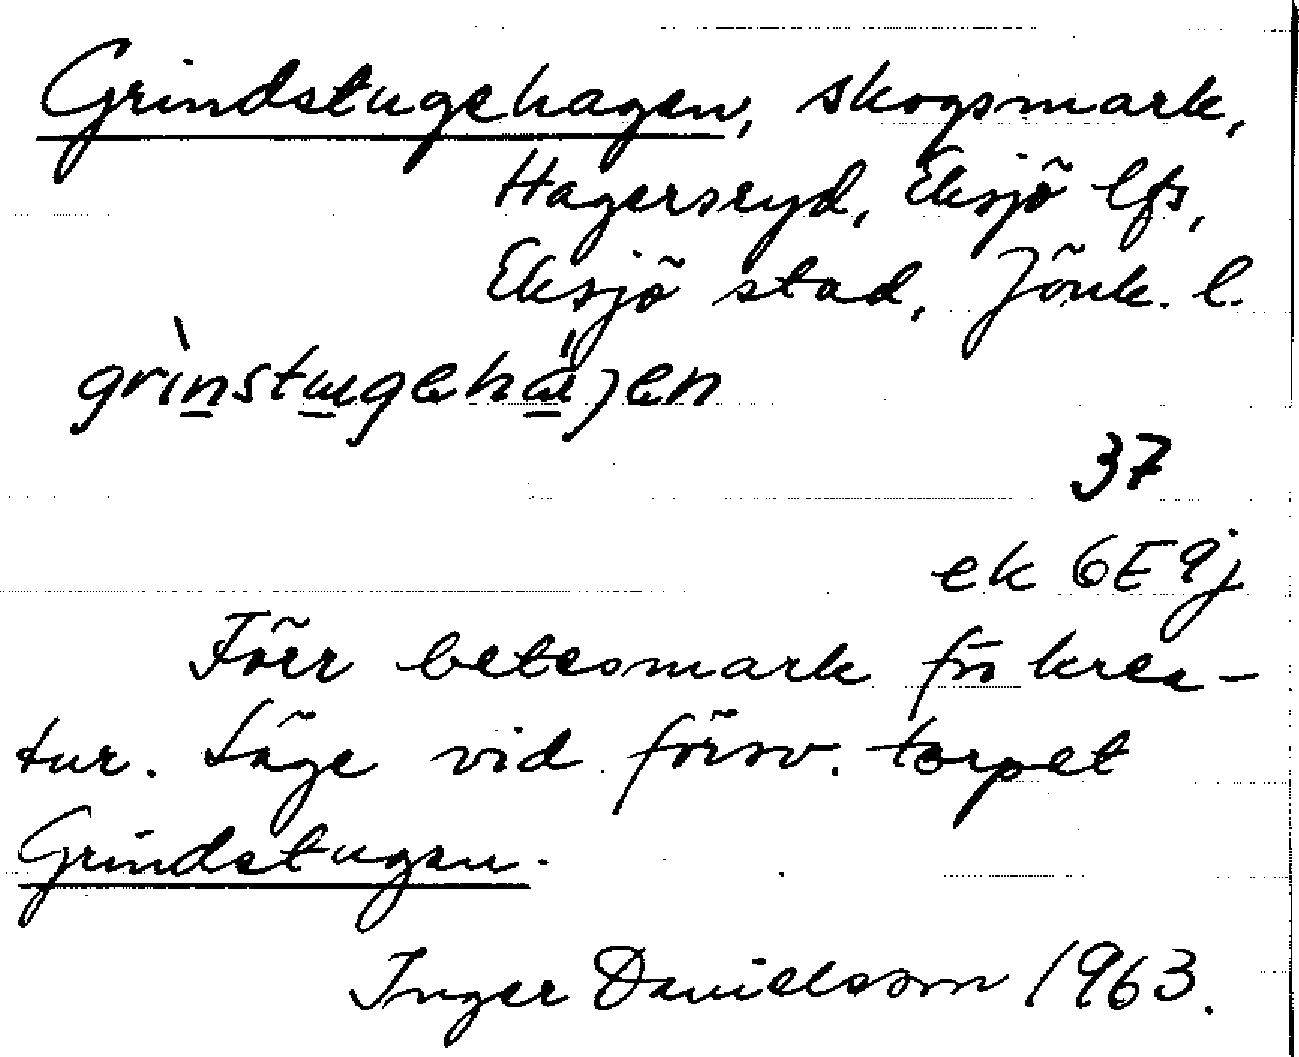 Grindstugehagen, skogsmark,
Hagersryd, Eksjö lfs,
Eksjö stad, Jönk. l.
37
ek 6E9j
Förr betesmark för krea-
tur. Läge vid försv. torpet
Grindstugan.
Inger Danielsson 1963.